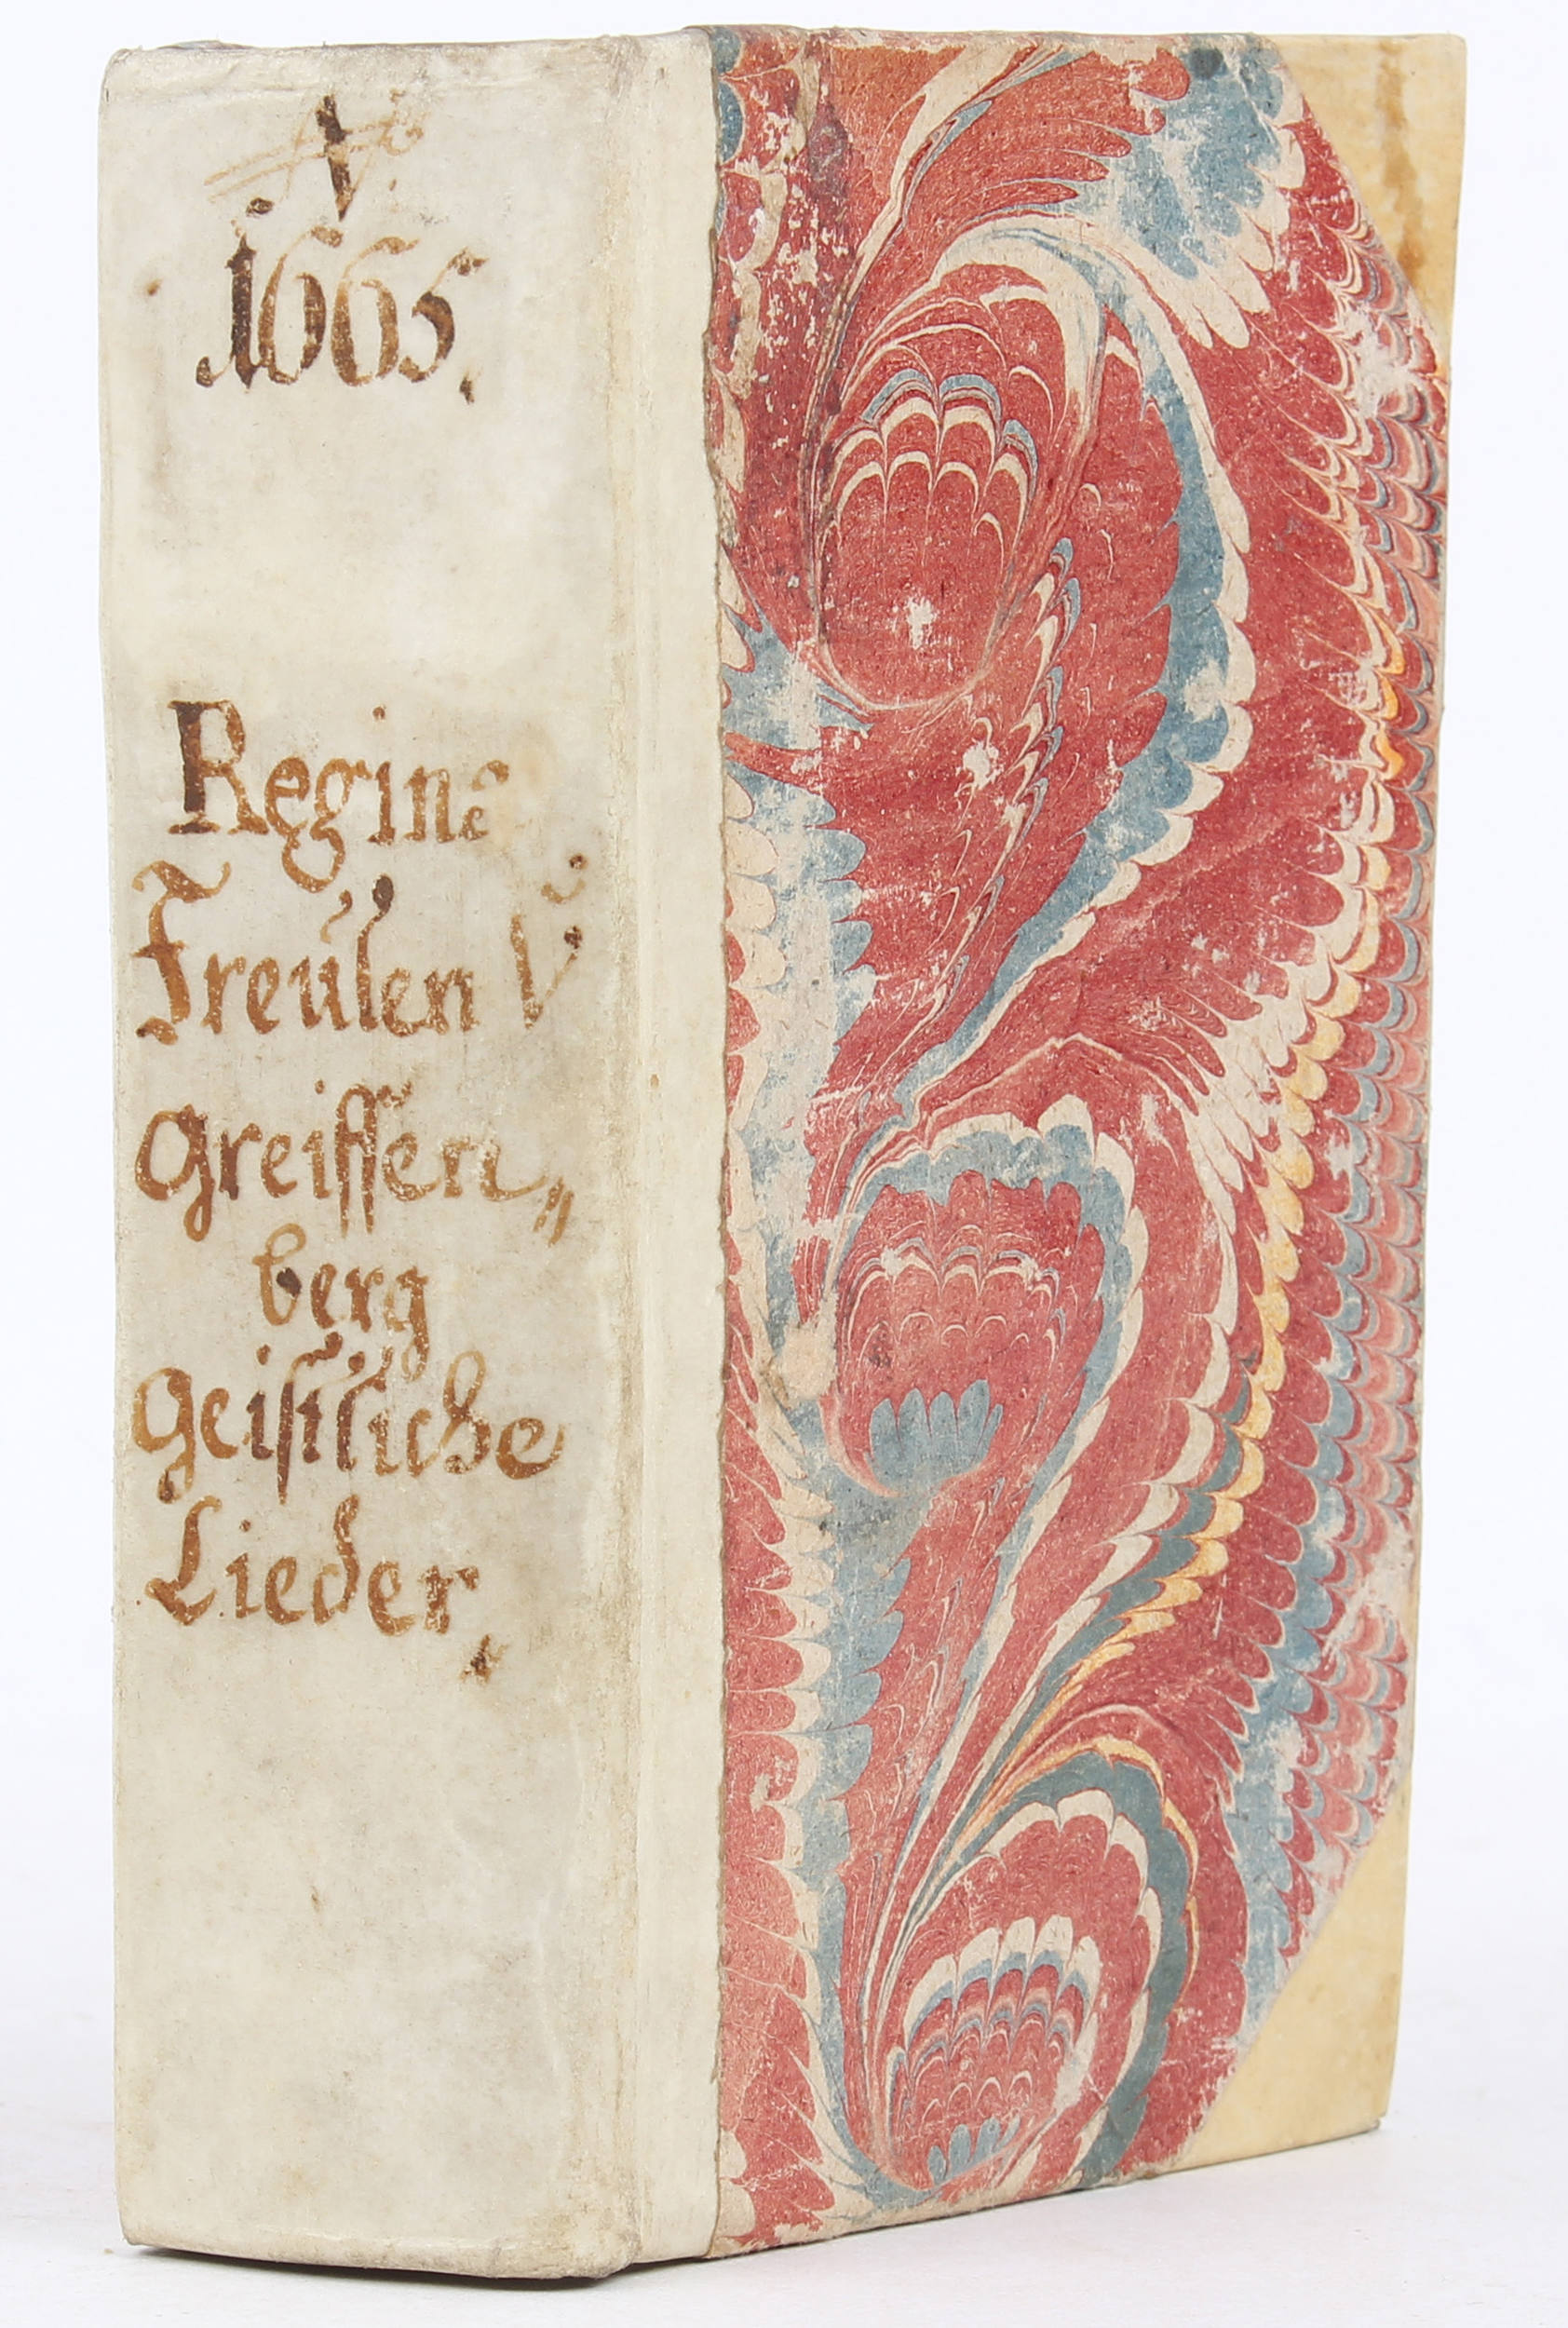 1665.
Regine
Freulen V
Greiffen„
berg
Geistliche
Lieder,